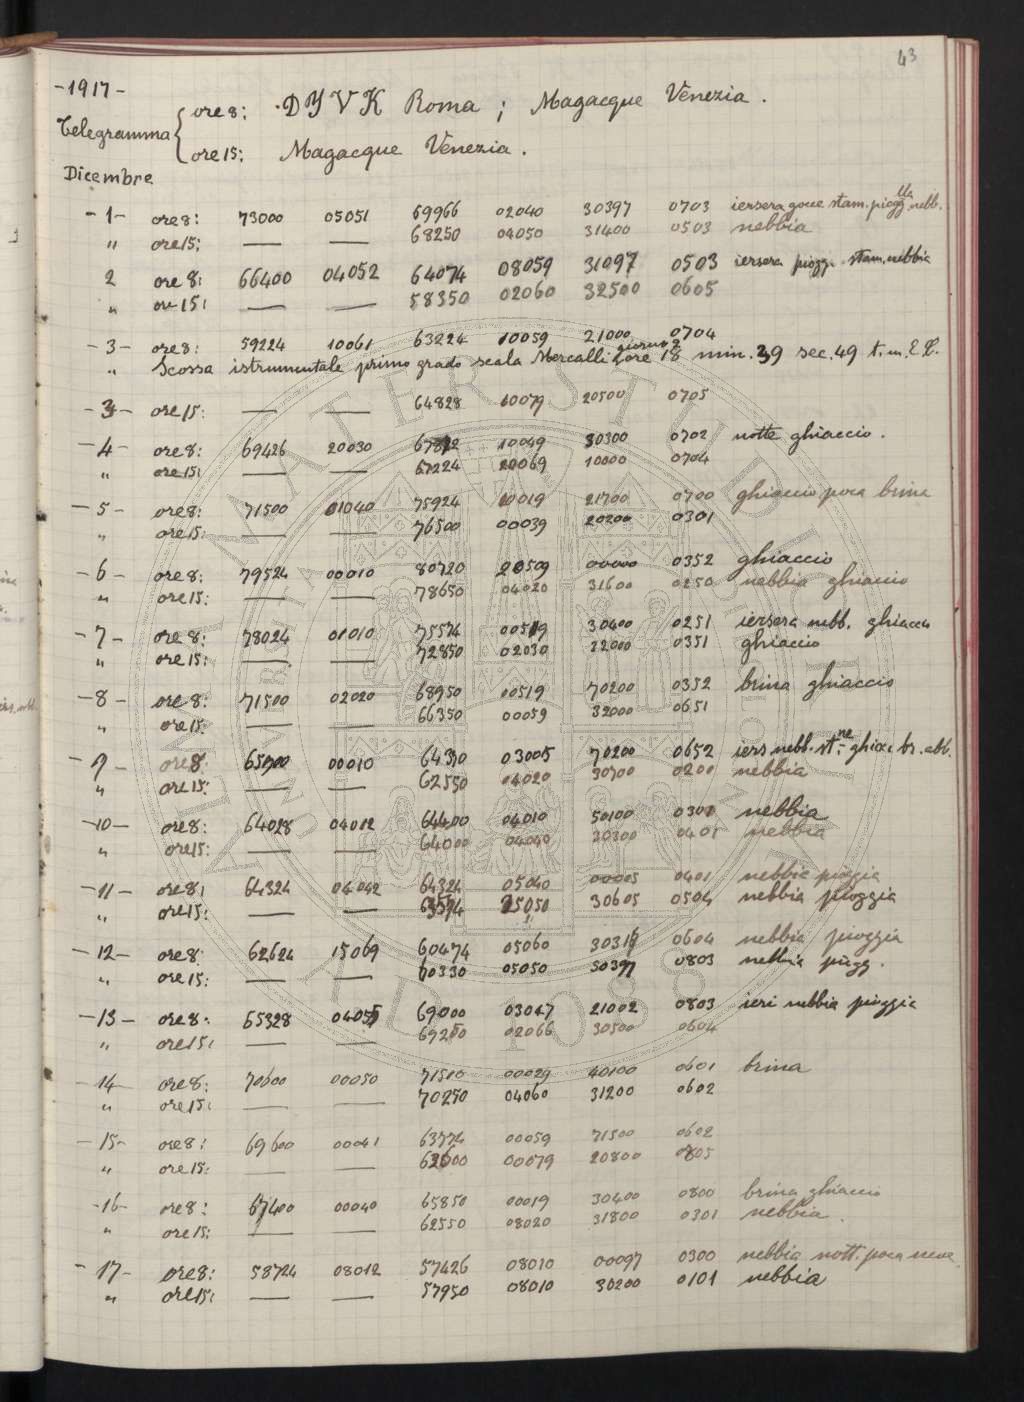 43
-1917-
Telegramma { ore 8: DYVK Roma ; Magacque Venezia .
ore 15: Magacque Venezia .
Dicembre
-1- ore 8: 73000 05051 69966 02040 30397 0703 iersera gocce stam. piogglla nebb.
" ore 15: — — 68250 04050 31400 0503 nebbia
2 ore 8: 66400 04052 64074 08059 31097 0503 iersera piogg. stam. nebbia
" ore 15: — — 58350 02060 32500 0605
-3- ore 8: 59224 10061 63224 10059 21000 0704
" Scossa istrumentale primo grado scala Mercalli giorno 2 ore 18 min. 39 sec. 49 t. m. E. C.
-3- ore 15: — — 64828 10079 20500 0705
-4- ore 8: 69426 20030 67822 10049 30300 0702 notte ghiaccio .
" ore 15: — — 67224 20069 10000 0704
-5- ore 8: 71500 01040 75924 10019 21700 0700 ghiaccio poca brina
" ore 15: — — 76500 00039 20200 0301
-6- ore 8: 79524 00010 80720 20509 00000 0352 ghiaccio
" ore 15: — — 78650 04020 31600 0250 nebbia ghiaccio
-7- ore 8: 78024 01010 75574 00519 30400 0251 iersera nebb. ghiaccio
" ore 15: — — 72850 02030 22000 0351 ghiaccio
-8- ore 8: 71500 02020 68950 00519 70200 0352 brina ghiaccio
" ore 15: — — 66350 00059 32000 0651
-9- ore 8: 65900 00010 64350 03005 70200 0652 iers nebb. st.ne ghiac. br. ebb.
" ore 15: — — 62550 04020 30700 0200 nebbia
-10- ore 8: 64028 04012 64400 04010 50100 0301 nebbia
" ore 15: — — 64000 04040 30300 0401 nebbia
-11- ore 8: 64324 04042 64324 05040 00005 0401 nebbia pioggia
" ore 15: — — 63574 25050 30605 0504 nebbia pioggia
-12- ore 8: 62624 15069 60474 05060 30319 0604 nebbia pioggia
" ore 15: — — 60330 05050 50397 0803 nebbia piogg .
-13- ore 8: 65328 04055 69000 03047 21002 0803 ieri nebbia pioggia
" ore 15: — — 69250 02066 30500 0604
-14- ore 8: 70600 00050 71510 00029 40100 0601 brina
" ore 15: — — 70250 04060 31200 0602
-15- ore 8: 69600 00041 63774 00059 71500 0602
" ore 15: — — 62600 00079 20800 0805
-16- ore 8: 67400 00040 65850 00019 30400 0800 brina ghiaccio
" ore 15: — — 62550 08020 31800 0301 nebbia .
-17- ore 8: 58724 08012 57426 08010 00097 0300 nebbia nott. poca neve
" ore 15: — — 57950 08010 30200 0101 nebbia
ALMA MATER STUDIORUM
A.D. 1088